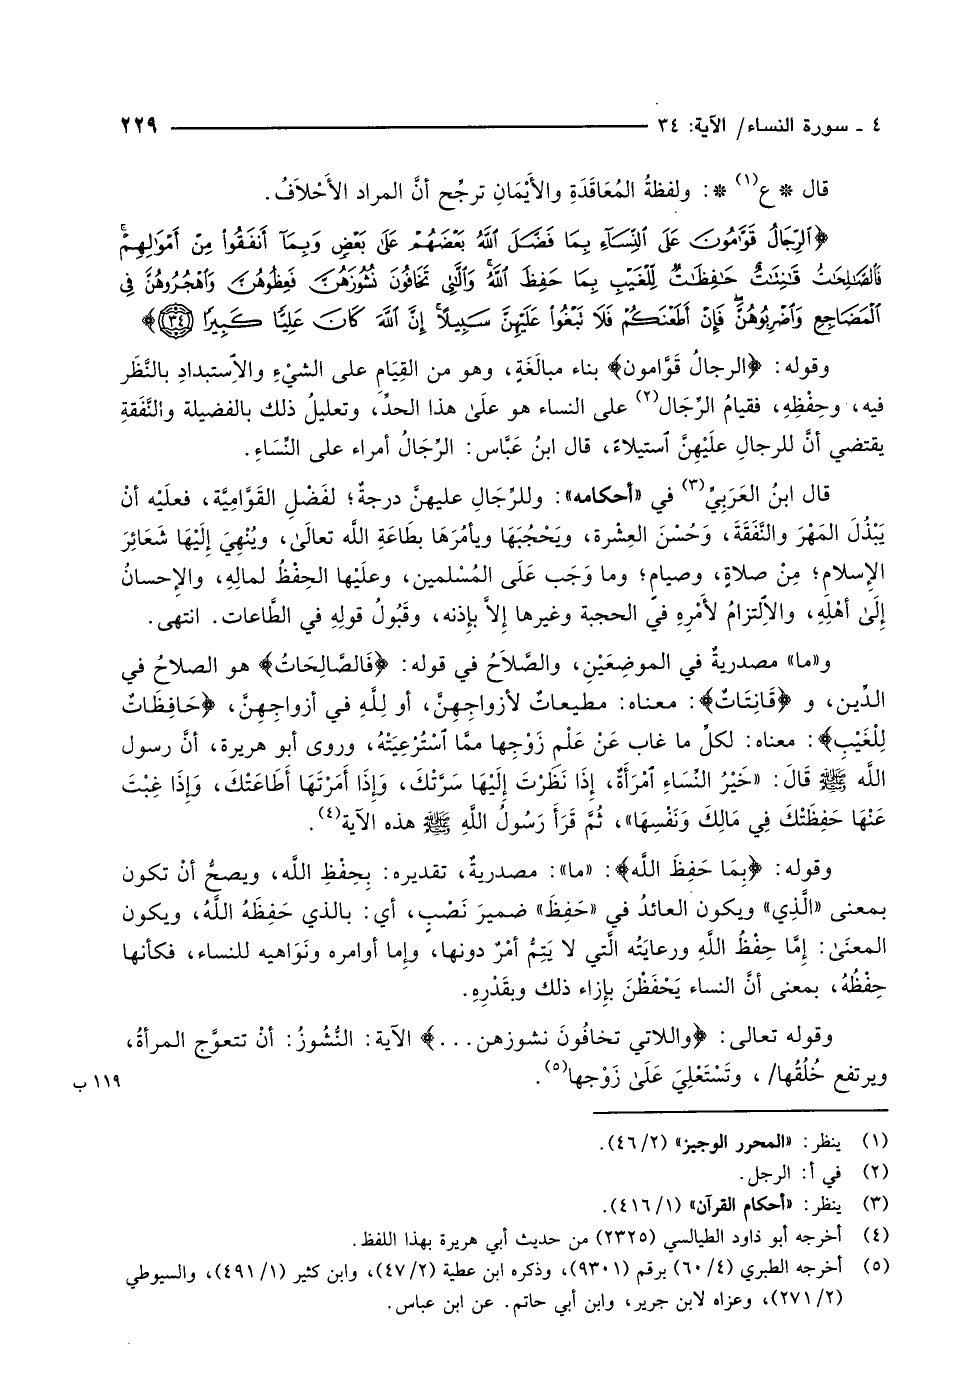 ٤ ـ سورة النساء/ الآية: ٣٤ ٢٢٩
قال * ع(١) *: ولفظةُ المُعَاقَدَةِ والأَيْمَانِ ترجِّح أنَّ المراد الأَحْلاَفُ.
﴿ٱلرِّجَالُ قَوَّٰمُونَ عَلَى ٱلنِّسَآءِ بِمَا فَضَّلَ ٱللَّهُ بَعْضَهُمْ عَلَىٰ بَعْضٍ وَبِمَآ أَنفَقُوا۟ مِنْ أَمْوَٰلِهِمْ ۚ
فَٱلصَّـٰلِحَـٰتُ قَـٰنِتَـٰتٌ حَـٰفِظَـٰتٌ لِّلْغَيْبِ بِمَا حَفِظَ ٱللَّهُ ۚ وَٱلَّـٰتِى تَخَافُونَ نُشُوزَهُنَّ فَعِظُوهُنَّ وَٱهْجُرُوهُنَّ فِى
ٱلْمَضَاجِعِ وَٱضْرِبُوهُنَّ ۖ فَإِنْ أَطَعْنَكُمْ فَلَا تَبْغُوا۟ عَلَيْهِنَّ سَبِيلًا ۗ إِنَّ ٱللَّهَ كَانَ عَلِيًّا كَبِيرًا ٣٤﴾
وقوله: ﴿الرجالُ قَوَّامون﴾ بناء مبالَغَةٍ، وهو من القِيَامِ على الشيْءِ والاِستبدادِ بالنَّظَر
فيه، وحِفْظِهِ، فقيامُ الرِّجَال(٢) على النساء هو علَىٰ هذا الحدِّ، وتعليلُ ذلك بالفضيلة والنَّفَقةِ
يقتضي أنَّ للرجال علَيْهِنَّ ٱستيلاءً، قال ابنُ عَبَّاس: الرِّجَالُ أمراء على النِّسَاءِ.
قال ابنُ العَرَبِيِّ(٣) في «أحكامه»: وللرِّجَالِ عليهنَّ درجةٌ؛ لفَضْلِ القَوَّامِيَّة، فعلَيْه أنْ
يَبْذُلَ المَهْرَ والنَّفَقَةَ، وَحُسْنَ العِشْرة، ويَحْجُبَهَا ويأمُرَهَا بطَاعَةِ اللَّه تعالَىٰ، ويُنْهِيَ إلَيْهَا شَعَائِرَ
الإسلامِ؛ مِنْ صلاةٍ، وصيامٍ؛ وما وَجَب عَلَى المُسْلمين، وعلَيْها الحِفْظُ لمالِهِ، والإحسانُ
إلَىٰ أهْلِهِ، والاِلتزامُ لأمْرِهِ في الحجبة وغيرها إلاَّ بإذنه، وقَبُولُ قولِهِ في الطَّاعات. انتهى.
و«ما» مصدريةٌ في الموضِعَيْنِ، والصَّلاَحُ في قوله: ﴿فَالصَّالِحَاتُ﴾ هو الصلاحُ في
الدِّين، و ﴿قَانِتَاتٌ﴾: معناه: مطيعاتٌ لأزواجِهِنَّ، أو لِلَّهِ في أزواجِهِنَّ، ﴿حَافِظَاتٌ
لِلْغَيْبِ﴾: معناه: لكلِّ ما غاب عَنْ عْلمِ زَوْجِها ممَّا ٱسْتُرْعِيَتْهُ، وروى أبو هريرة، أنَّ رسول
اللَّه ﷺ قَالَ: «خَيْرُ النِّسَاءِ ٱمْرَأَةٌ، إذَا نَظَرْتَ إلَيْهَا سَرَّتْكَ، وَإذَا أَمَرْتَهَا أَطَاعَتْكَ، وَإذَا غِبْتَ
عَنْهَا حَفِظَتْكَ فِي مَالِكَ وَنَفْسِهَا»، ثُمَّ قَرَأَ رَسُولُ اللَّهِ ﷺ هذه الآية(٤).
وقوله: ﴿بِمَا حَفِظَ اللَّه﴾: «ما»: مصدريةٌ، تقديره: بِحِفْظِ اللَّه، ويصحُّ أنْ تكون
بمعنى «الَّذِي» ويكون العائدُ في «حَفِظَ» ضميرَ نَصْبٍ، أي: بالذي حَفِظَهُ اللَّهُ، ويكون
المعنَىٰ: إمَّا حِفْظُ اللَّهِ ورعايَتُه الَّتي لا يَتِمُّ أمْرٌ دونها، وإما أوامره ونَوَاهيه للنساء، فكأنها
حِفْظُهُ، بمعنى أنَّ النساء يَحْفَظْنَ بإزاء ذلك وبقَدْرِهِ.
وقوله تعالى: ﴿واللاتي تخافُونَ نشوزهن...﴾ الآية: النُّشُوزُ: أنْ تتعوَّج المرأةُ،
ويرتفع خُلُقُها/، وتَسْتَعْلِيَ عَلَىٰ زَوْجها(٥). ١١٩ ب
(١) ينظر: «المحرر الوجيز» (٢/ ٤٦).
(٢) في أ: الرجل.
(٣) ينظر: «أحكام القرآن» (١/ ٤١٦).
(٤) أخرجه أبو داود الطيالسي (٢٣٢٥) من حديث أبي هريرة بهذا اللفظ.
(٥) أخرجه الطبري (٤/ ٦٠) برقم (٩٣٠١)، وذكره ابن عطية (٢/ ٤٧)، وابن كثير (١/ ٤٩١)، والسيوطي
(٢/ ٢٧١)، وعزاه لابن جرير، وابن أبي حاتم. عن ابن عباس.